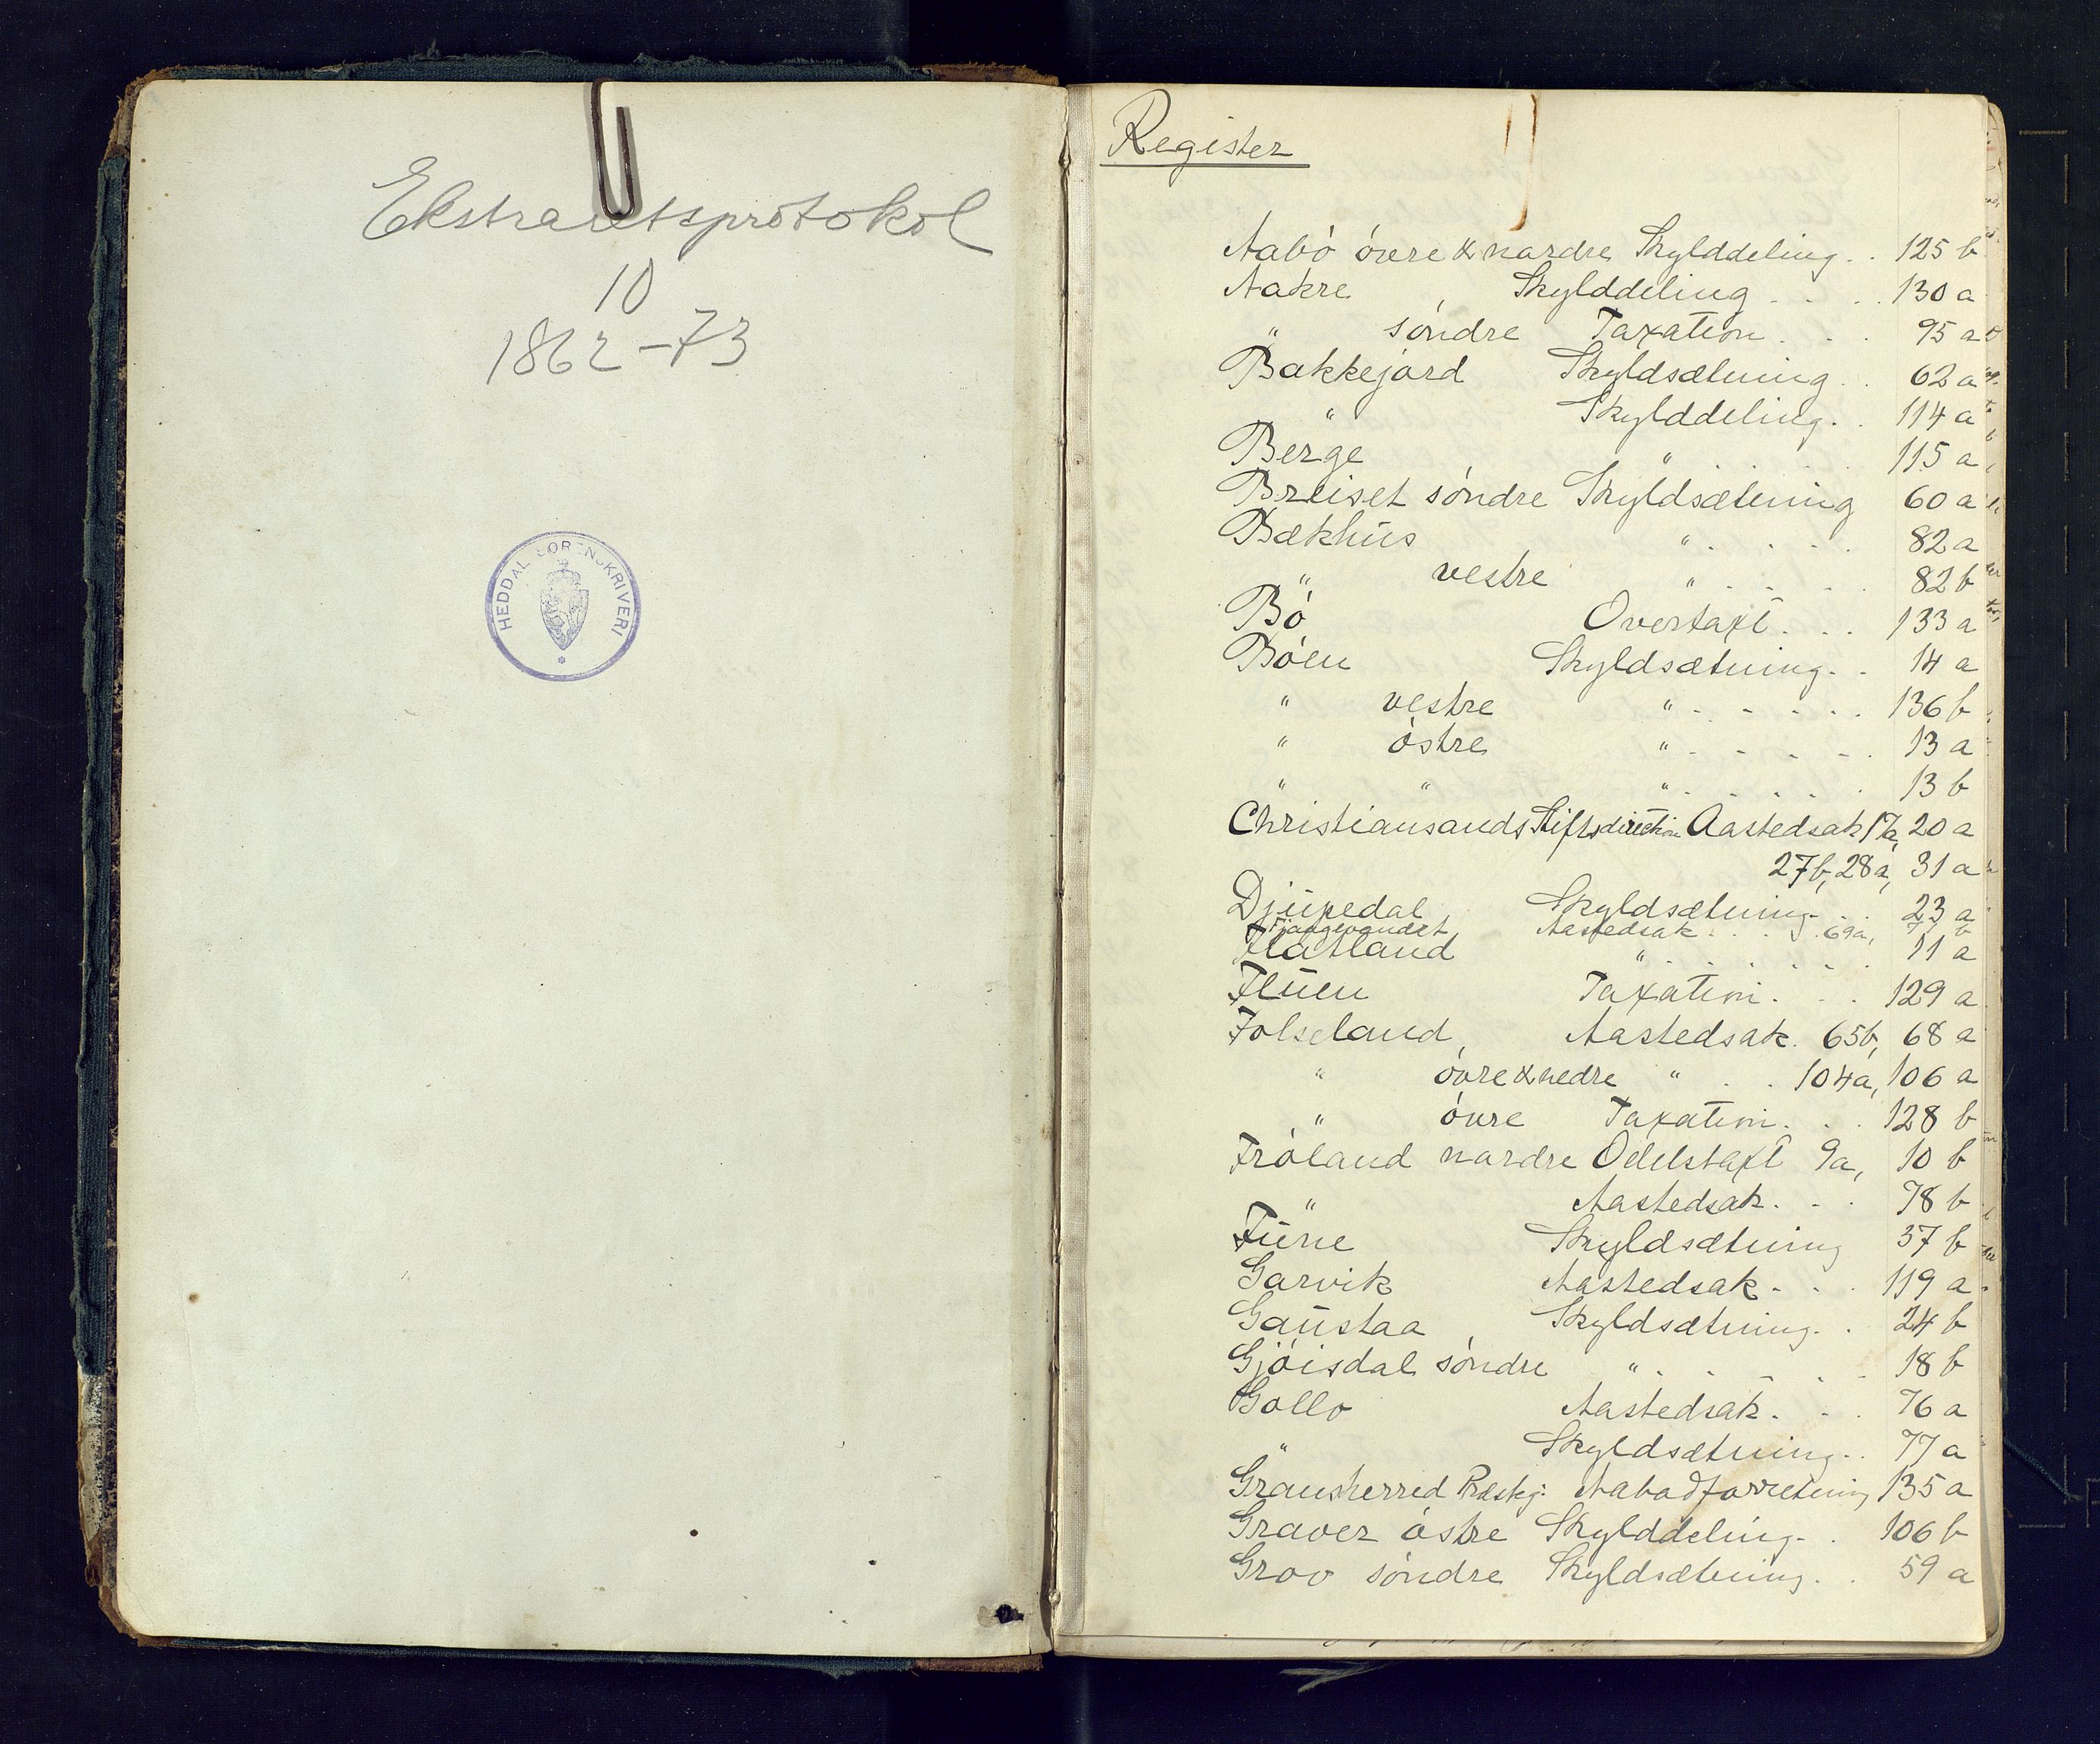 Ekstraretsprotokol
10
1862-73
HEDDAL SORENSKRIVERI
Register
Aabó óvre & nordre Skylddeling . . 125 b
Aakre Skylddeling . . . 130 a
" söndre Taxation . . . 95 a
Bakkejord Skyldsætning . . 62 a
" Skylddeling . . 114 a
Berge " . . . . 115 a
Breiset söndre Skyldsætning 60 a
Bækhus " . . . . 82 a
" vestre " . . . . 82 b
Bó Overtaxt . . . 133 a
Bóen Skyldsætning . . 14 a
" vestre " . . . . . 136 b
" óstre " . . . . . 13 a
" " " . . . . . 13 b
Christiansands Stiftsdirection Aastedsak 17a, 20 a
27b, 28a, 31 a
Djupedal Skyldsætning . . 23 a
Aastedsak . . . 69a, 73 b
Flatland " . . . . . 11 a
Fluen Taxation . . . 129 a
Folseland Aastedsak . 65b, 68 a
" óvre & nedre " . . 104a, 106 a
" óvre Taxation . . . 128 b
Fróland nordre Odelstaxt 9a, 10 b
" Aastedsak . . . 78 b
Fúrie Skyldsætning 37 b
Garvik Aastedsak . . . 119 a
Gaustaa Skyldsætning . . 24 b
Gjóisdal söndre " . . . . . 18 b
Gollo Aastedsak . . . 76 a
" Skyldsætning . . 77 a
Gransherred Præstegj: Aabodforretning 135 a
Graver óstre Skylddeling . . 106 b
Grov söndre Skyldsætning . . 59 a